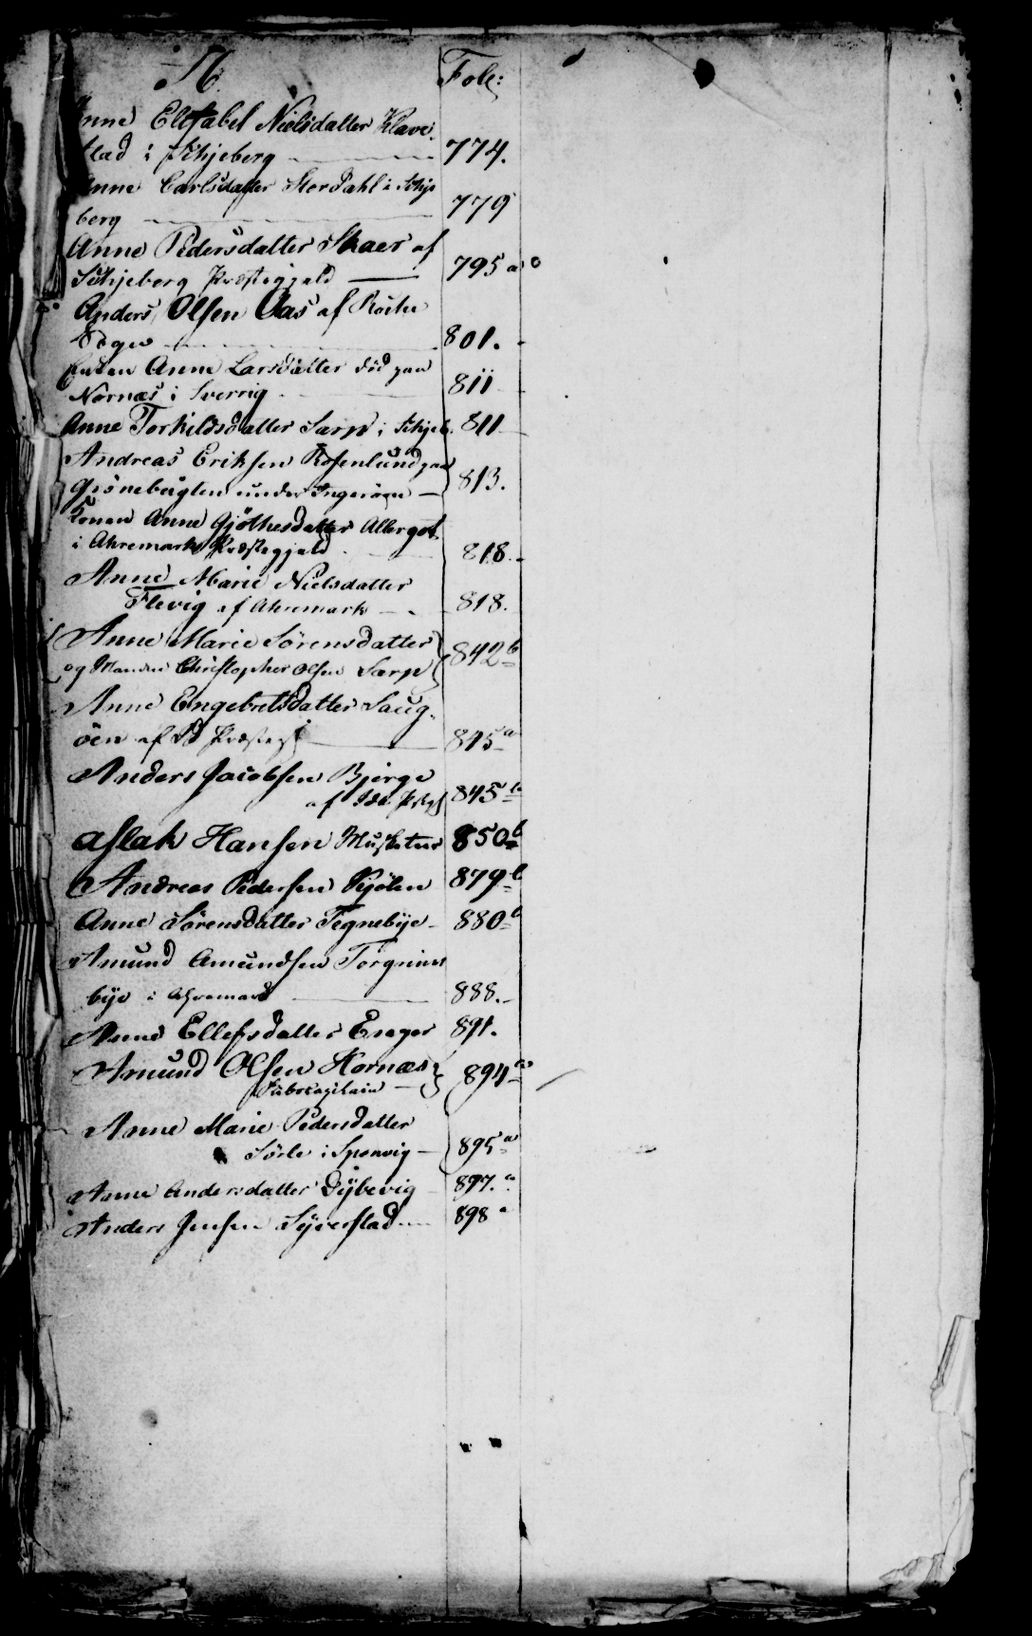 A. Fole:
Anne Elisabet Nielsdatter Klave-
stad i Skjeberg 774.
Anne Carlsdatter Stordahl i Skje
berg 779
Anne Pedersdatter Skaer af
Skjeberg Præstegjæld 795 a
Anders Olsen Aas af
Sogn 801.
Enken Anne Larsdatter død paa
Nornæs i Sverrig 811
Anne Torkildsdatter Sarp i Skjeb. 811
Andreas Eriksen Rosenlund paa
under 813.
Konen Anne Gjøthesdatter
i Ahremarks Præstegjæld 818.
Anne Marie Nielsdatter
Flevig af Ahremark 818.
Anne Marie Sørensdatter
og Manden Christopher Olsen Sarp 842 b
Anne Engebretsdatter Saug-
öen af Id Præstegj 845 a
Anders Jacobsen Bjerge
af Idde Prstgj 845 b
Aslak Hansen Musketeer 850 b
Andreas Pedersen Kjølen 879 b
Anne Sørensdatter Tegnebye 880 b
Amund Amundsen
bye i Ahremark 888.
Anne Ellefsdatter 891.
Amund Olsen Hornæs 894 a
Anne Marie Pedersdatter
i Sponvig 895 a
Anne Andersdatter Dybevig 897. a
Anders Jensen Syverstad 898 a